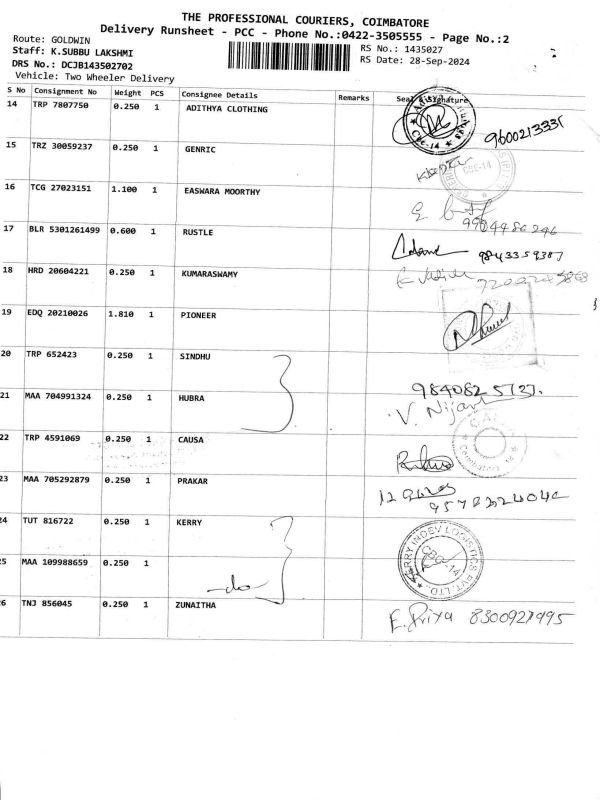 THE PROFESSIONAL COURIERS, COIMBATORE
Delivery Runsheet - PCC - Phone No.:0422-3505555 - Page No.:2
Route: GOLDWIN
Staff: K.SUBBU LAKSHMI
DRS No.: DCJB143502702
Vehicle: Two Wheeler Delivery
RS No.: 1435027
RS Date: 28-Sep-2024
S No Consignment No Weight PCS Consignee Details Remarks Seal & Signature
14 TRP 7807750 0.250 1 ADITHYA CLOTHING CBE-14
15 TRZ 30059237 0.250 1 GENRIC CBE-14
16 TCG 27023151 1.100 1 EASWARA MOORTHY
17 BLR 5301261499 0.600 1 RUSTLE 9843359387
18 HRD 20604221 0.250 1 KUMARASWAMY
19 EDQ 20210026 1.810 1 PIONEER
20 TRP 652423 0.250 1 SINDHU
21 MAA 704991324 0.250 1 HUBRA V. Nijan
22 TRP 4591069 0.250 1 CAUSA
23 MAA 705292879 0.250 1 PRAKAR
24 TUT 816722 0.250 1 KERRY KERRY INDEV LOGISTICS PVT. LTD. CBE-14
25 MAA 109988659 0.250 1 -do-
26 TNJ 856045 0.250 1 ZUNAITHA E. Priya 8300921995